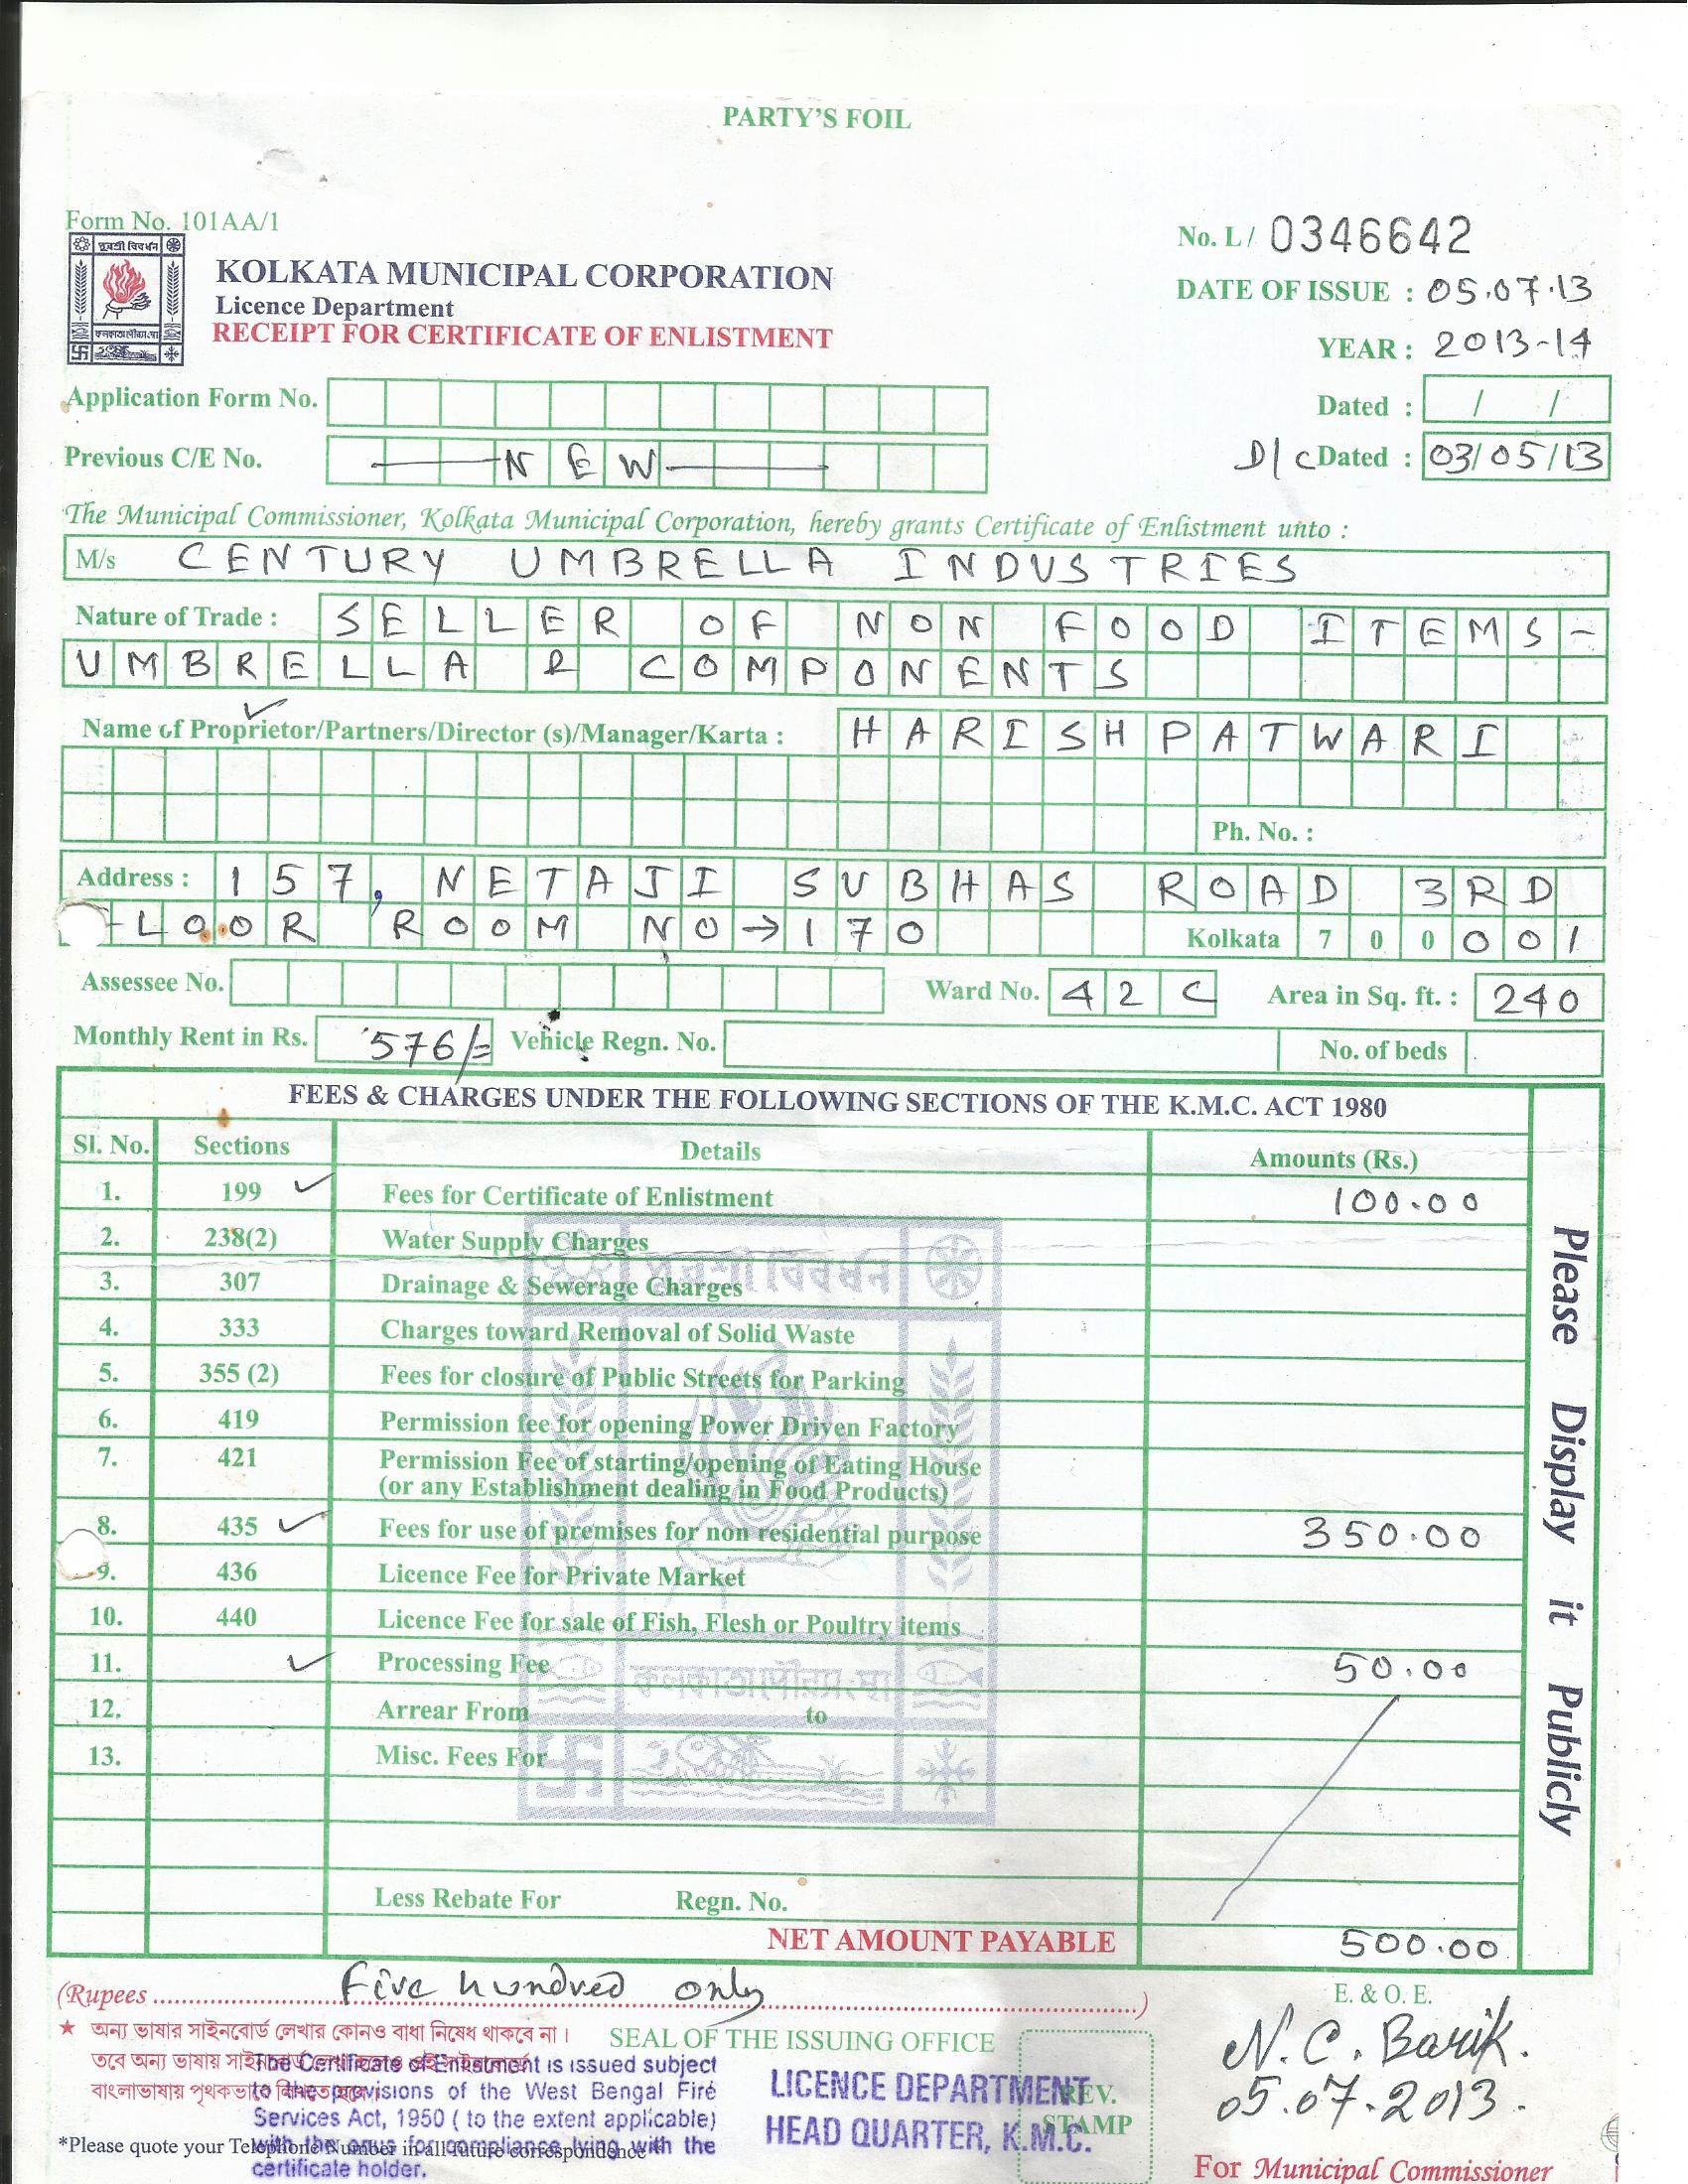 PARTY'S FOIL
Form No. 101AA/1
No. L/ 0346642
KOLKATA MUNICIPAL CORPORATION
DATE OF ISSUE : 05.07.13
Licence Department
RECEIPT FOR CERTIFICATE OF ENLISTMENT
YEAR : 2013-14
Application Form No.
Dated : / /
Previous C/E No. NEW
D/C Dated : 03/05/13
The Municipal Commissioner, Kolkata Municipal Corporation, hereby grants Certificate of Enlistment unto :
M/s CENTURY UMBRELLA INDUSTRIES
Nature of Trade : SELLER OF NON FOOD ITEMS-
UMBRELLA & COMPONENTS
Name of Proprietor/Partners/Director (s)/Manager/Karta : HARISH PATWARI
Ph. No. :
Address : 157, NETAJI SUBHAS ROAD 3RD
FLOOR ROOM NO→170 Kolkata 700001
Assessee No. Ward No. 42 C Area in Sq. ft. : 240
Monthly Rent in Rs. 576/= Vehicle Regn. No. No. of beds
FEES & CHARGES UNDER THE FOLLOWING SECTIONS OF THE K.M.C. ACT 1980
Sl. No. Sections Details Amounts (Rs.)
1. 199 ✓ Fees for Certificate of Enlistment 100.00
2. 238(2) Water Supply Charges
3. 307 Drainage & Sewerage Charges
4. 333 Charges toward Removal of Solid Waste
5. 355 (2) Fees for closure of Public Streets for Parking
6. 419 Permission fee for opening Power Driven Factory
7. 421 Permission Fee of starting/opening of Eating House
(or any Establishment dealing in Food Products)
8. 435 ✓ Fees for use of premises for non residential purpose 350.00
9. 436 Licence Fee for Private Market
10. 440 Licence Fee for sale of Fish, Flesh or Poultry items
11. ✓ Processing Fee 50.00
12. Arrear From to
13. Misc. Fees For
Less Rebate For Regn. No.
NET AMOUNT PAYABLE 500.00
Please Display it Publicly
(Rupees Five hundred only)
E. & O. E.
★ অন্য ভাষার সাইনবোর্ড লেখার কোনও বাধা নিষেধ থাকবে না।
SEAL OF THE ISSUING OFFICE
N. C. Barik.
05.07.2013.
তবে অন্য ভাষায়
বাংলাভাষায় পৃথকভাবে
The Certificate of Enlistment is issued subject
to the provisions of the West Bengal Fire
Services Act, 1950 ( to the extent applicable)
with the onus for compliance lying with the
certificate holder.
LICENCE DEPARTMENT
HEAD QUARTER, K.M.C.
REV.
STAMP
*Please quote your Telephone Number in all future correspondence*
For Municipal Commissioner